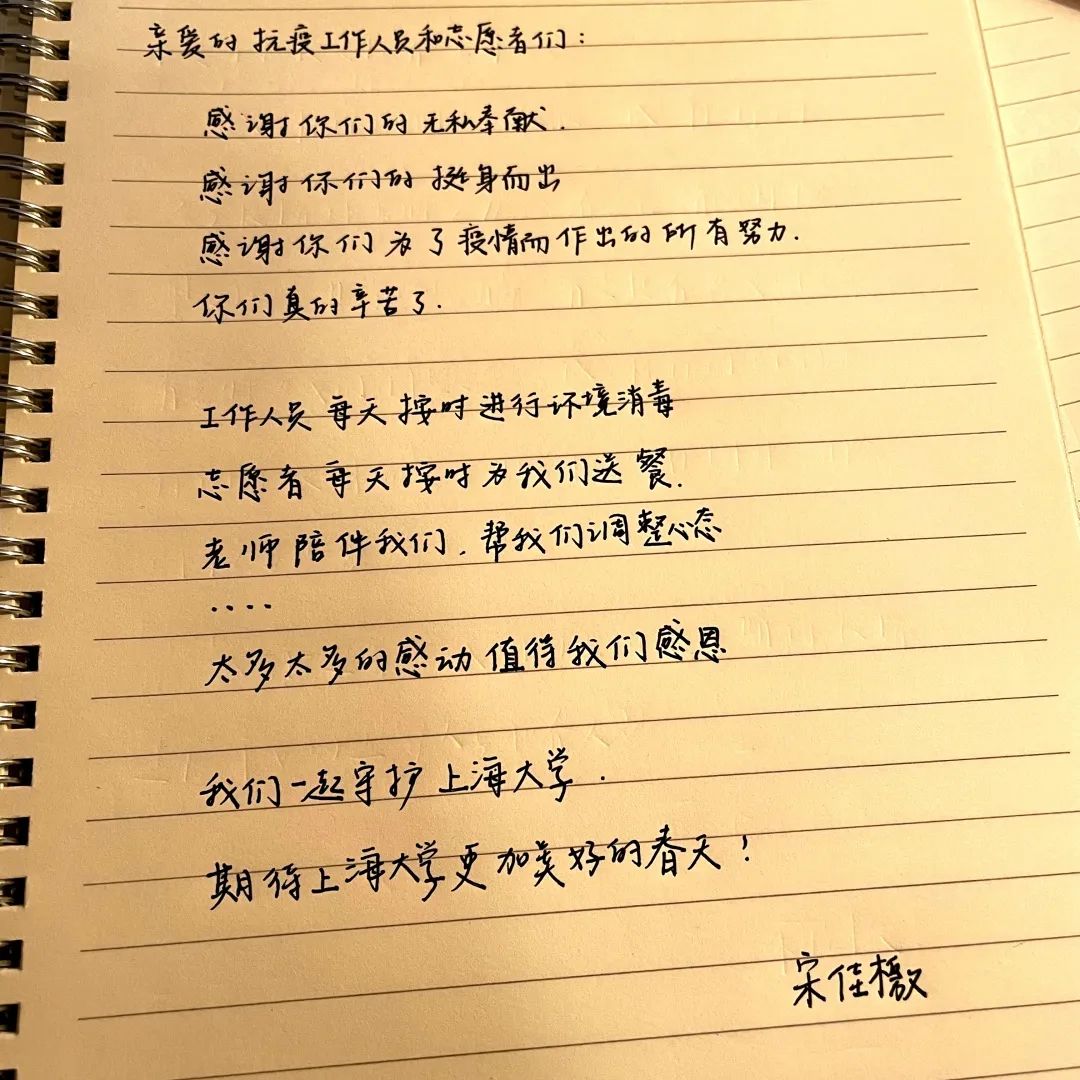 亲爱的抗疫工作人员和志愿者们：
感谢你们的无私奉献.
感谢你们的挺身而出
感谢你们为了疫情而作出的所有努力.
你们真的辛苦了.
工作人员每天按时进行环境消毒
志愿者每天按时为我们送餐.
老师陪伴我们,帮我们调整心态
....
太多太多的感动值得我们感恩
我们一起守护上海大学.
期待上海大学更加美好的春天!
宋佳檄